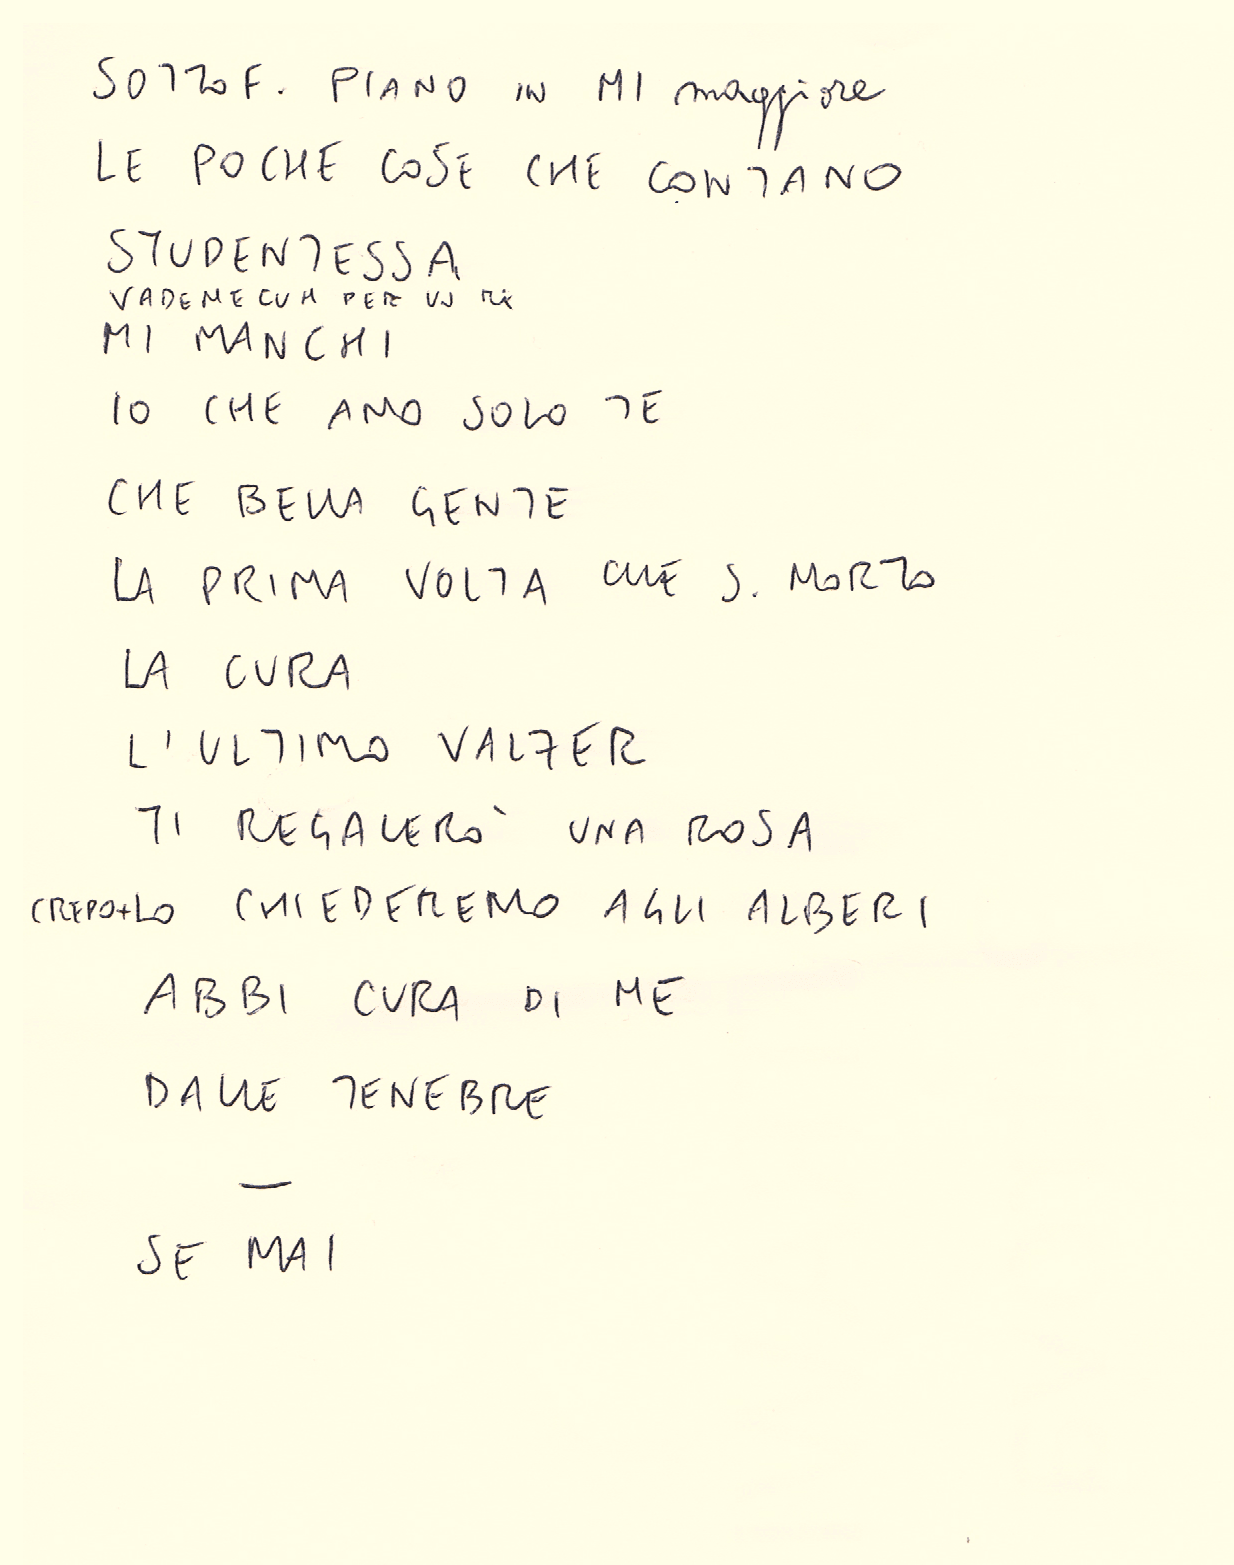 SOTTOF. PIANO IN MI maggiore
LE POCHE COSE CHE CONTANO
STUDENTESSA
VADEMECUM PER UN
MI MANCHI
IO CHE AMO SOLO TE
CHE BELLA GENTE
LA PRIMA VOLTA CHE S. MORTO
LA CURA
L'ULTIMO VALZER
TI REGALERÒ UNA ROSA
CREPO+LO CHIEDEREMO AGLI ALBERI
ABBI CURA DI ME
DALLE TENEBRE
—
SE MAI